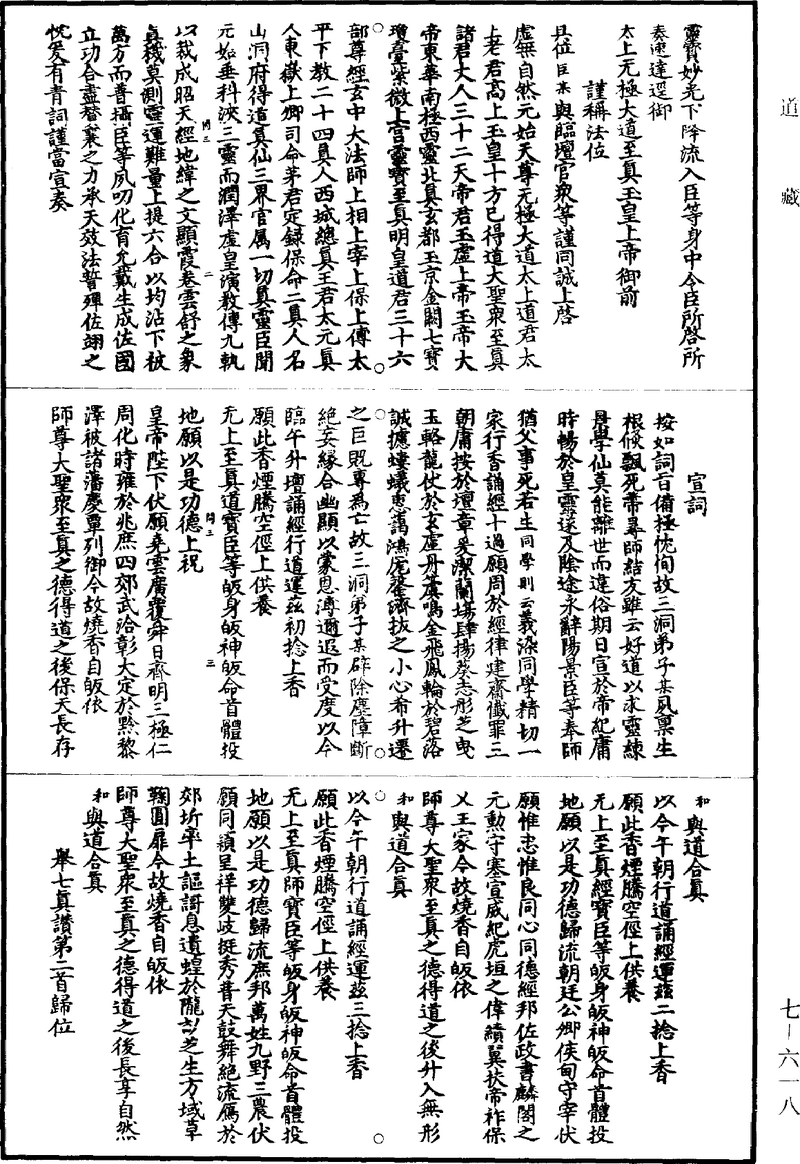 道藏
七-六一八
靈寶妙光下降流入臣等身中令臣所啓所
奏速達逕御
太上无極大道至真玉皇上帝御前
謹稱法位
具位臣某與臨壇官衆等謹同誠上啓
虛無自然元始天尊无極大道太上道君太
上老君高上玉皇十方已得道大聖衆至真
諸君丈人三十二天帝君玉虛上帝玉帝大
帝東華南極西靈北真玄都玉京金闕七寶
瓊臺紫微上宮靈寶至真明皇道君三十六
部尊經玄中大法師上相上宰上保上傅太
平下教二十四真人西城總真王君太元真
人東嶽上卿司命茅君定錄保命二真人名
山洞府得道真仙三界官属一切真靈臣聞
元始垂科浹三靈而潤澤虛皇演教傳九執
以裁成昭天經地緯之文顯霞卷雲舒之象
真機莫測靈運難量上提六合以均沾下被
萬方而普攝臣等夙叨化育允戴生成佐國
立功合盡替襄之力承天效法誓殫佐翊之
忱爰有青詞謹當宣奏
宣詞
按如詞旨備極忱恂故三洞弟子某夙稟生
根倏飄死蔕尋師結友雖云好道以求靈練
景學仙莫能離世而違俗期日宣於帝紀庸
時暢於皇靈遂及陰途永辭陽景臣等奉師
猶父事死若生同學則云義深同學精切一
家行香誦經十過願周於經律建齋懺罪三
朝庸按於壇章爰潔蘭場肆揚葵志彤芝曳
玉輅龍仗於玄虛丹篆鳴金飛鳳輪於碧落
誠攄螻蟻惠藹鴻厖罄濟拔之小心希升遷
之巨既專為亡故三洞弟子某辟除塵障斷
絶妄緣合幽顯以蒙恩溥邇遐而受度以今
臨午升壇誦經行道運兹初捻上香
願此香煙騰空俓上供養
无上至真道寶臣等皈身皈神皈命首體投
地願以是功德上祝
皇帝陛下伏願堯雲廣覆舜日齊明三極仁
周化時雍於兆庶四郊武洽彰大定於黔黎
澤被諸藩慶覃列御今故燒香自皈依
師尊大聖衆至真之德得道之後保天長存
和與道合真
以今午朝行道誦經運兹二捻上香
願此香煙騰空俓上供養
无上至真經寶臣等皈身皈神皈命首體投
地願以是功德歸流朝廷公卿侯甸守宰伏
願惟忠惟良同心同德經邦佐政書麟閣之
元勲守塞宣威紀虎垣之偉績翼扶帝祚保
乂王家今故燒香自皈依
師尊大聖衆至真之德得道之後升入無形
和與道合真
以今午朝行道誦經運兹三捻上香
願此香煙騰空俓上供養
无上至真師寶臣等皈身皈神皈命首體投
地願以是功德歸流庶邦萬姓九野三農伏
願同穎呈祥雙歧挺秀普天鼓舞絶流鴈於
郊圻率土謳謌息遺蝗於隴畝芝生方域草
鞠圓扉今故燒香自皈依
師尊大聖衆至真之德得道之後長享自然
和與道合真
舉七真讚第二首歸位